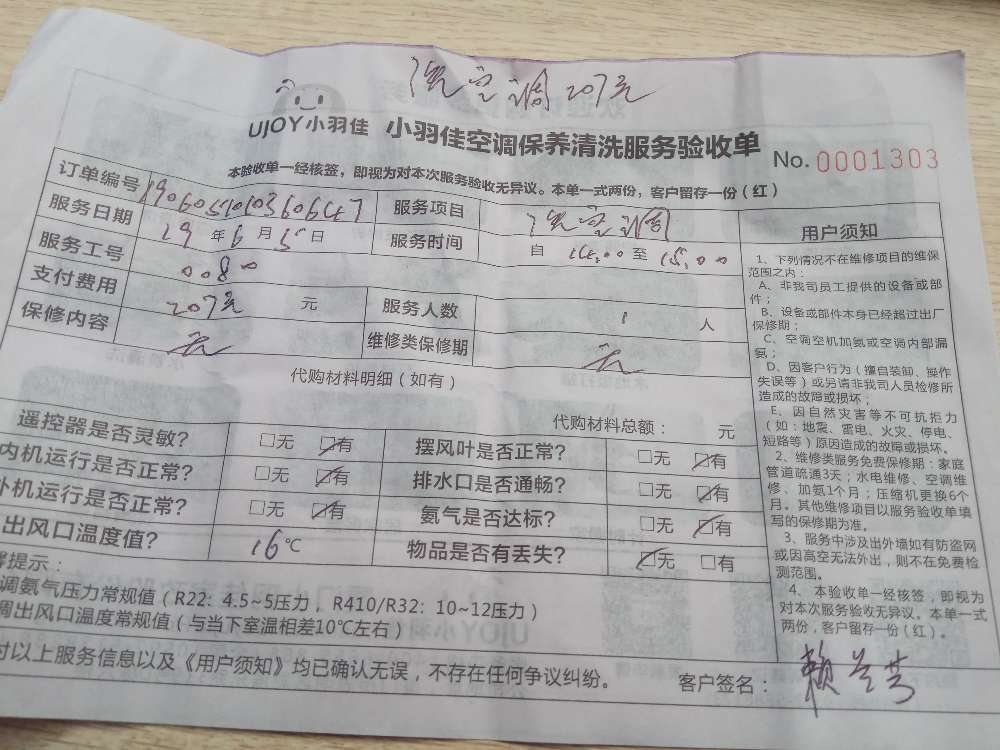 洗空调207元
UJOY小羽佳 小羽佳空调保养清洗服务验收单
No. 0001303
本验收单一经核签，即视为对本次服务验收无异议。本单一式两份，客户留存一份（红）
订单编号 服务项目 洗空调
服务日期 19年6月5日 服务时间 自14:00至15:00
服务工号
支付费用 207元 元 服务人数 1人
保修内容 无 维修类保修期 无
代购材料明细（如有）
代购材料总额： 元
遥控器是否灵敏? □无 ☑有 摆风叶是否正常? □无 ☑有
内机运行是否正常? □无 ☑有 排水口是否通畅? □无 ☑有
外机运行是否正常? □无 ☑有 氨气是否达标? □无 ☑有
出风口温度值? 16℃ 物品是否有丢失? ☑无 □有
提示：
调氨气压力常规值（R22：4.5~5压力，R410/R32：10~12压力）
调出风口温度常规值（与当下室温相差10℃左右）
对以上服务信息以及《用户须知》均已确认无误，不存在任何争议纠纷。
客户签名：
用户须知
1、下列情况不在维修项目的维保
范围之内：
A、非我司员工提供的设备或部
件；
B、设备或部件本身已经超过出厂
保修期；
C、空调空机加氨或空调内部漏
氨；
D、因客户行为（擅自装卸、操作
失误等）或另请非我司人员检修所
造成的故障或损坏；
E、因自然灾害等不可抗拒力
（如：地震、雷电、火灾、停电、
短路等）原因造成的故障或损坏。
2、维修类服务免费保修期：家庭
管道疏通3天；水电维修、空调维
修、加氨1个月；压缩机更换6个
月。其他维修项目以服务验收单填
写的保修期为准。
3、服务中涉及出外墙如有防盗网
或因高空无法外出，则不在免费检
测范围。
4、本验收单一经核签，即视为
对本次服务验收无异议。本单一式
两份，客户留存一份（红）。